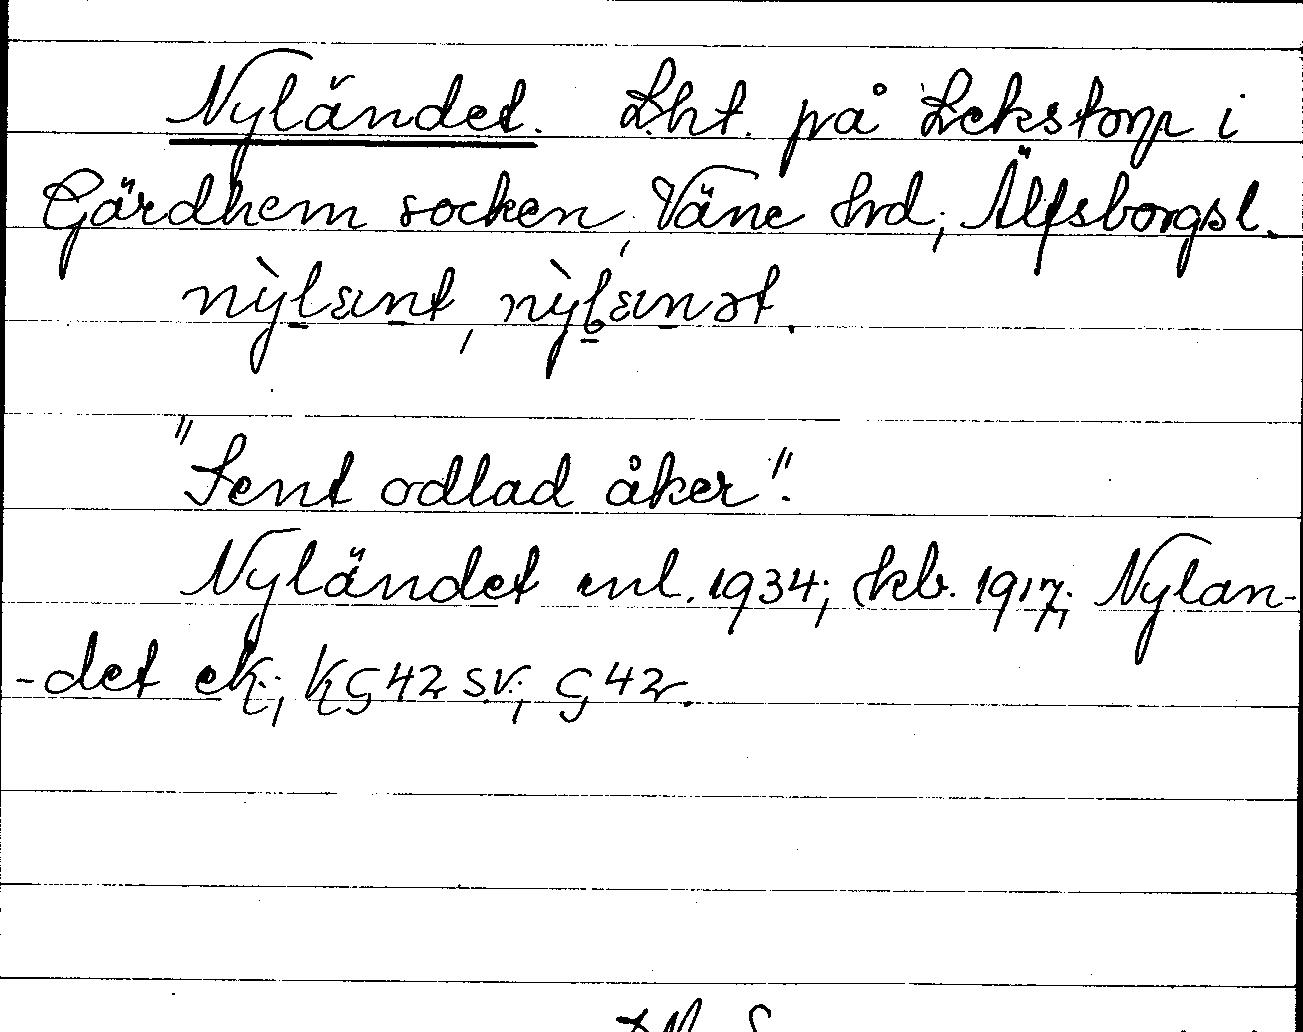 Nyländet. Lht. på Lekstorp i
Gärdhem socken, Väne hrd, Älfsborgsl.
nỳlænt, nỳlænət.
"Sent odlad åker".
Nyländet enl. 1934; hkb. 1917; Nylan-
-det ek.; KG 42 sv.; G 42.